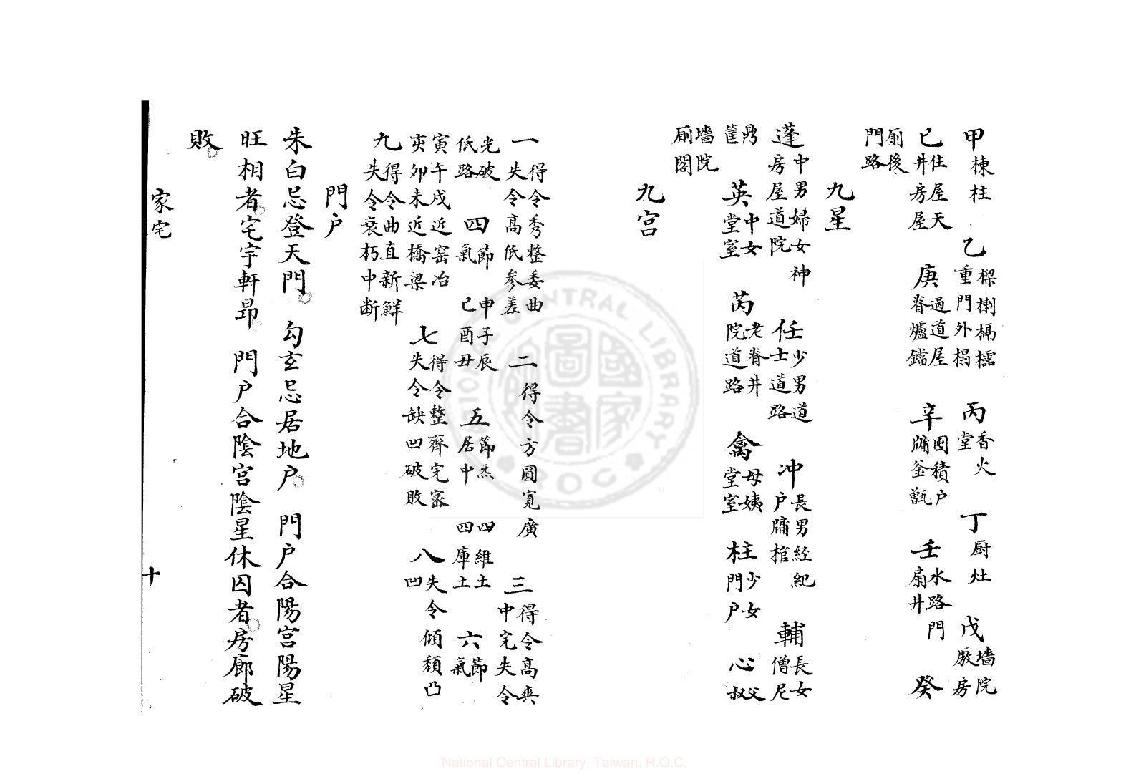 甲棟柱 乙重門外 丙香火堂 丁厨灶 戊墻院厫房
已住屋天井房屋 庚過道屋脊爐 辛囤積户牖釜甑 壬水路門扇井 癸
厠後門路
九星
蓬中男婦女神房屋道院 任少男道士道路 冲長男經紀户牖棺 輔長女僧尼
鼎筐 英中女堂室 芮老脊井院道路 禽母姨堂室 柱少女門户 心父叔
墻院厠閣
九宫
一得令秀整委曲失令高低参差 二得令方圓寛廣 三得令高爽中完失令
光破低路 四節氣 申子辰巳酉丑 五節杰居中 四維土四庫土 六節氣
寅午戌近窑冶寅卯未近橋梁 七得令整齊完宻失令缺凹破敗 八失令傾頽凸凹
九得令曲直新鮮失令衰朽中断
門户
朱白忌登天門。勾玄忌居地户。門户合陽宫陽星
旺相者。宅宇軒昂 門户合陰宫陰星休囚者。房廊破
敗。
家宅
十
National Central Library, Taiwan, R.O.C.